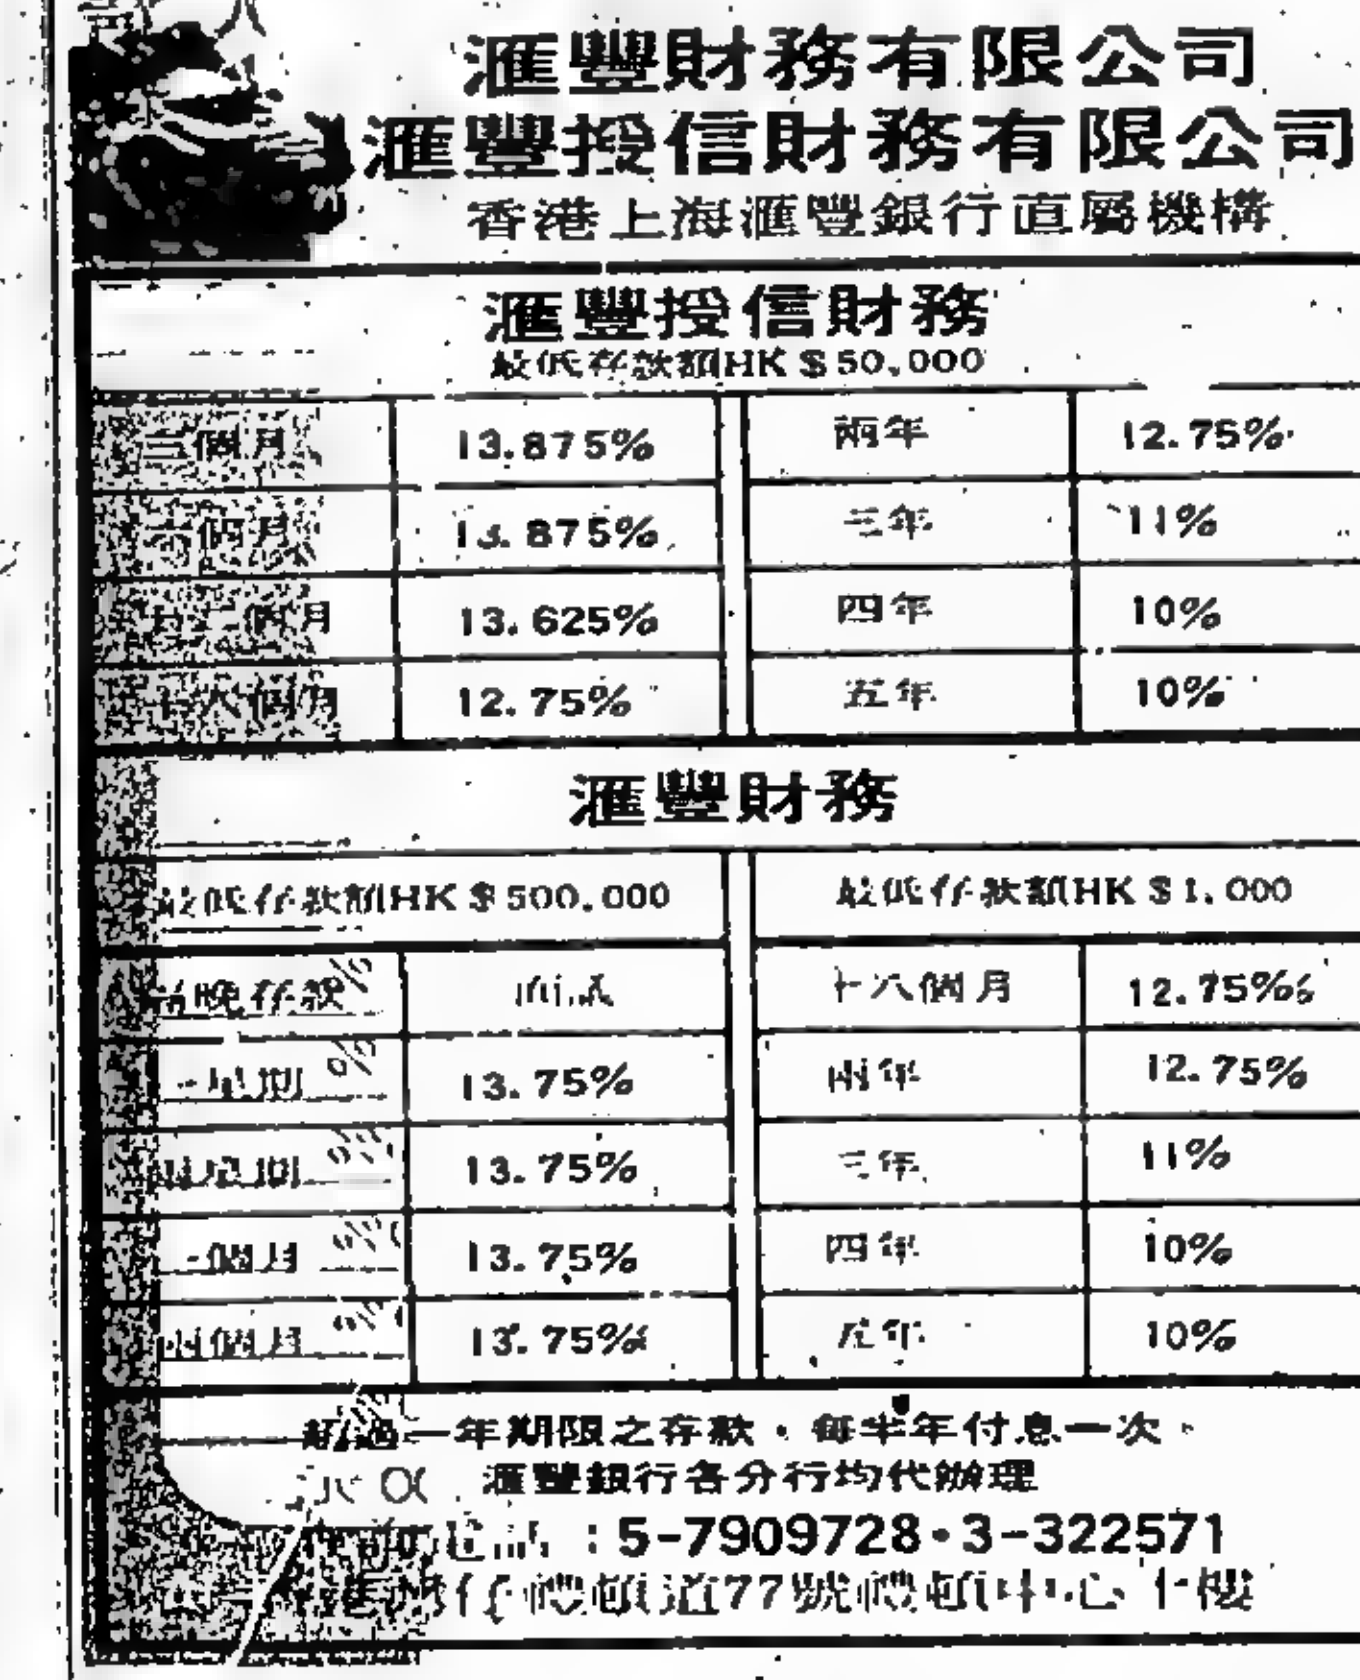 滙豐財務有限公司
滙豐授信財務有限公司
香港上海滙豐銀行直屬機構
滙豐授信財務
最低存款額HK＄50,000
三個月 13.875% 兩年 12.75%
六個月 13.875% 三年 11%
十二個月 13.625% 四年 10%
十八個月 12.75% 五年 10%
滙豐財務
最低存款額HK＄500,000 最低存款額HK＄1,000
晚存款 十八個月 12.75%
一星期 13.75% 兩年 12.75%
兩星期 13.75% 三年 11%
一個月 13.75% 四年 10%
兩個月 13.75% 五年 10%
超過一年期限之存款，每半年付息一次。
滙豐銀行各分行均代辦理
：5-7909728·3-322571
道77號 中心十樓